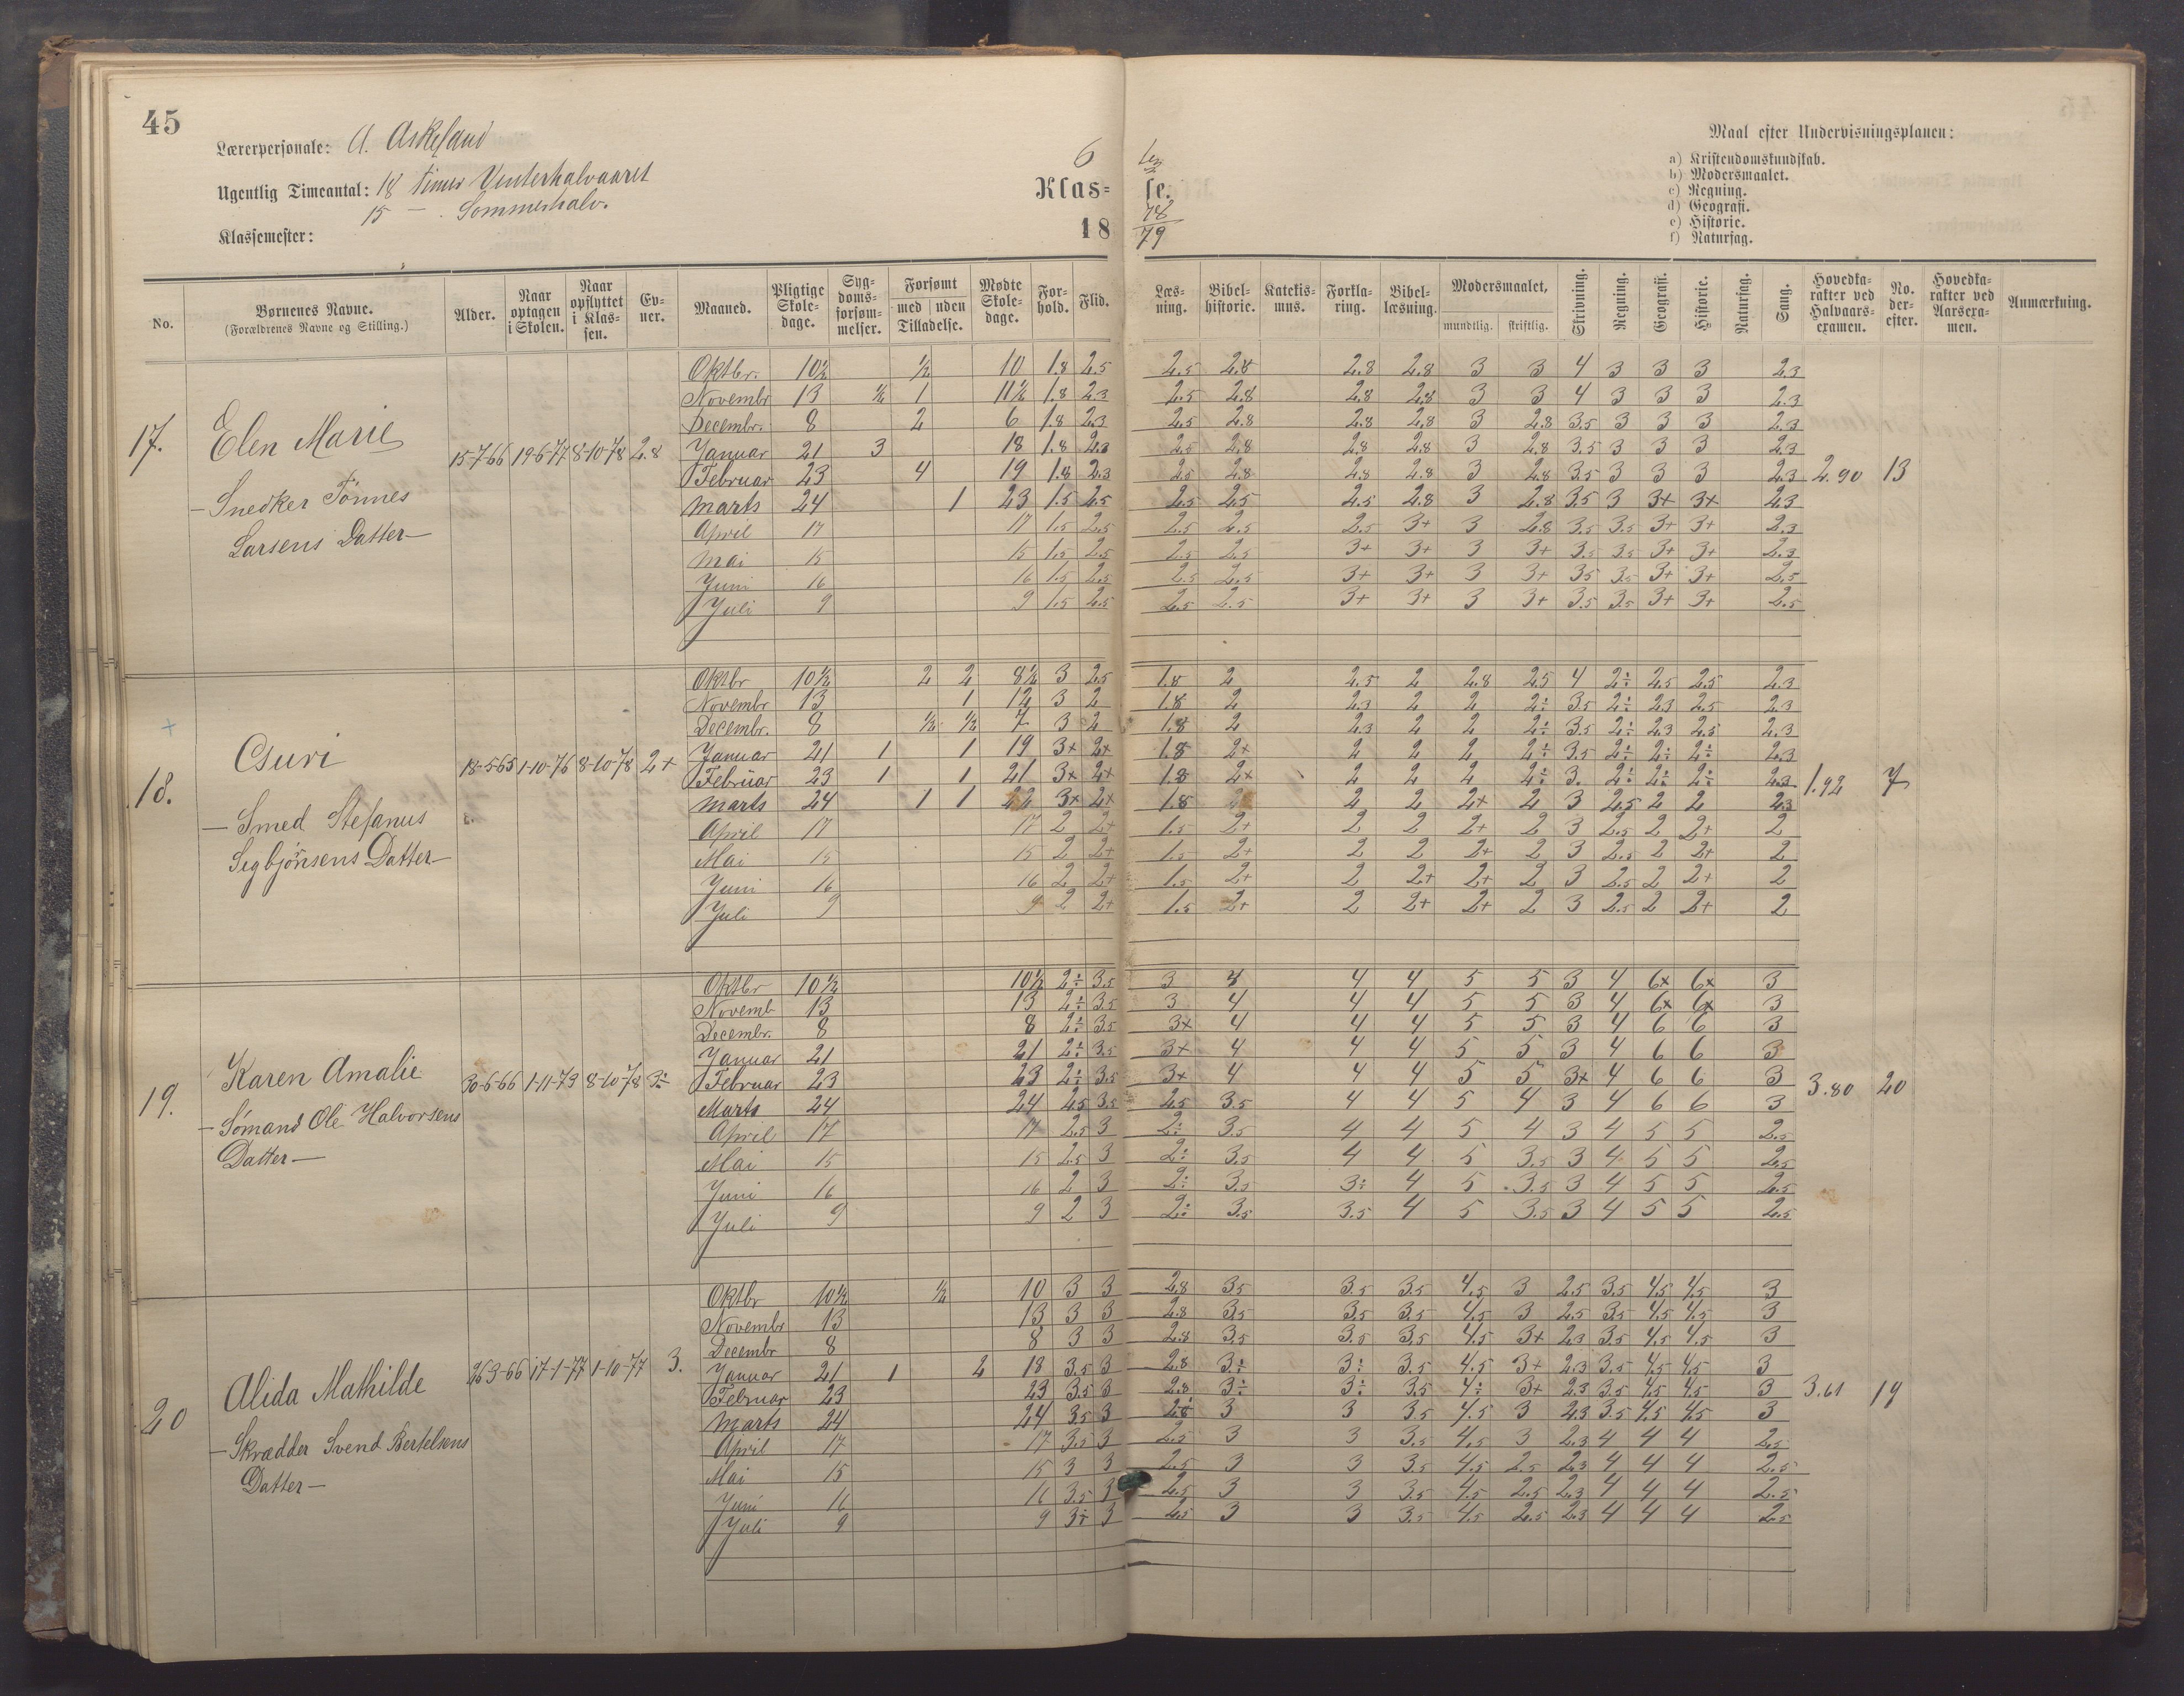 45
Lærerpersonale: A. Askeland
Ugentlig Timeantal: 18 timer Vinterhalvaaret
15 — Sommerhalv.
Klassemester:
6
Klas- se.
18 78/79
Maal efter Undervisningsplanen:
a) Kristendomskundskab.
b) Modersmaalet.
c) Regning.
d) Geografi.
e) Historie.
f) Naturfag.
No. Børnenes Navne. (Forældrenes Navne og Stilling.) Alder. Naar optagen i Skolen. Naar opflyttet i Klassen. Evner. Maaned. Pligtige Skoledage. Sygdomsforsømmelser. Forsømt med uden Tilladelse. Mødte Skoledage. Forhold. Flid. Læsning. Bibelhistorie. Katekismus. Forklaring. Bibellæsning. Modersmaalet, mundtlig. skriftlig. Skrivning. Regning. Geografi. Historie. Naturfag. Sang. Hovedkarakter ved Halvaarsexamen. No. derefter. Hovedkarakter ved Aarsexamen. Anmærkning.
17. Elen Marie
— Snedker Tönnes
Larsens Datter —
15-7-66 19-6-77 8-10-78 2.8
Oktbr. 10½ ½ 10 1.8 2.5 2.5 2.8 2.8 2.8 3 3 4 3 3 3 2.3
Novembr 13 ½ 1 11½ 1.8 2.3 2.5 2.8 2.8 2.8 3 3 4 3 3 3 2.3
Decembr. 8 2 6 1.8 2.3 2.5 2.8 2.8 2.8 3 2.8 3.5 3 3 3 2.3
Januar 21 3 18 1.8 2.3 2.5 2.8 2.8 2.8 3 2.8 3.5 3 3 3 2.3
Februar 23 4 19 1.8 2.3 2.5 2.8 2.8 2.8 3 2.8 3.5 3 3 3 2.3 2.90 13
Marts 24 1 23 1.5 2.5 2.5 2.5 2.5 2.8 3 2.8 3.5 3 3+ 3+ 2.3
April 17 17 1.5 2.5 2.5 2.5 2.5 3+ 3 2.8 3.5 3.5 3+ 3+ 2.3
Mai 15 15 1.5 2.5 2.5 2.5 3+ 3+ 3 3+ 3.5 3.5 3+ 3+ 2.3
Juni 16 16 1.5 2.5 2.5 2.5 3+ 3+ 3 3+ 3.5 3.5 3+ 3+ 2.5
Juli 9 9 1.5 2.5 2.5 2.5 3+ 3+ 3 3+ 3.5 3.5 3+ 3+ 2.5
+
18.
— Smed Stefanus
Segbjörnsens Datter —
18-5-65 1-10-76 8-10-78 2+
Oktbr 10½ 2 2 8½ 3 2.5 1.8 2 2.5 2 2.8 2.5 4 2÷ 2.5 2.5 2.3
Novembr 13 1 12 3 2 1.8 2 2.3 2 2 2÷ 3.5 2÷ 2.3 2.5 2.3
Decembr. 8 ½ ½ 7 3 2 1.8 2 2.3 2 2 2÷ 3.5 2÷ 2.3 2.5 2.3
Januar 21 1 1 19 3+ 2+ 1.8 2+ 2 2 2 2÷ 3.5 2÷ 2÷ 2÷ 2.3
Februar 23 1 1 21 3+ 2+ 1.8 2+ 2 2 2 2÷ 3. 2÷ 2÷ 2÷ 2.3 1.92 7
Marts 24 1 1 22 3+ 2+ 1.8 2 2 2+ 2 3 2.5 2 2 2.3
April 17 17 2 2+ 1.5 2+ 2 2 2+ 2 3 2.5 2 2+ 2
Mai 15 15 2 2+ 1.5 2+ 2 2 2+ 2 3 2.5 2 2+ 2
Juni 16 16 2 2+ 1.5 2+ 2 2+ 2+ 2 3 2.5 2 2+ 2
Juli 9 9 2 2+ 1.5 2+ 2 2+ 2+ 2 3 2.5 2 2+ 2
19. Karen Amalie
— Sömand Ole Halvorsens
Datter —
30-6-66 1-11-73 8-10-78 3÷
Oktbr 10½ 10½ 2÷ 3.5 3 4 4 4 5 5 3 4 6+ 6+ 3
Novemb 13 13 2÷ 3.5 3 4 4 4 5 5 3 4 6+ 6+ 3
Decembr. 8 8 2÷ 3.5 3+ 4 4 4 5 5 3 4 6 6 3
Januar 21 21 2÷ 3.5 3+ 4 4 4 5 5 3 4 6 6 3
Februar 23 23 2÷ 3.5 3+ 4 4 4 5 5 3+ 4 6 6 3 3.80 20
Marts 24 24 2.5 3.5 2.5 3.5 4 4 5 4 3 4 6 6 3
April 17 17 2.5 3 2÷ 3.5 4 4 5 4 3 4 5 5 2.5
Mai 15 15 2.5 3 2÷ 3.5 4 4 5 3.5 3 4 5 5 2.5
Juni 16 16 2 3 2÷ 3.5 3÷ 4 5 3.5 3 4 5 5 2.5
Juli 9 9 2 3 2÷ 3.5 3.5 4 5 3.5 3 4 5 5 2.5
20 Alida Mathilde
— Skrædder Svend Bertelsens
Datter —
26 3-66 17-1-77 1-10-77 3.
Oktbr 10½ ½ 10 3 3 2.8 3.5 3.5 3.5 4.5 3 2.5 3.5 4.5 4.5 3
Novembr 13 13 3 3 2.8 3.5 3.5 3.5 4.5 3 2.5 3.5 4.5 4.5 3
Decembr 8 8 3 3 2.8 3.5 3.5 3.5 4.5 3+ 2.3 3.5 4.5 4.5 3
Januar 21 1 2 18 3.5 3 2.8 3÷ 3÷ 3.5 4.5 3+ 2.3 3.5 4.5 4.5 3
Februar 23 23 3.5 3 2.8 3÷ 3÷ 3.5 4÷ 3+ 2.3 3.5 4.5 4.5 3 3.61 19
Marts 24 24 3.5 3 2.8 3 3 3.5 4.5 3 2.3 3.5 4.5 4.5 3
April 17 17 3.5 3 2.5 3 3 3.5 4.5 3 2.3 4 4 4 2.5
Mai 15 15 3 3 2.5 3 3 3.5 4.5 2.5 2.3 4 4 4 2.5
Juni 16 16 3.5 3 2.5 3 3 3.5 4.5 2.5 2.3 4 4 4 2.5
Juli 9 9 3÷ 3 2.5 3 3 3.5 4.5 2.5 2.3 4 4 4 2.5